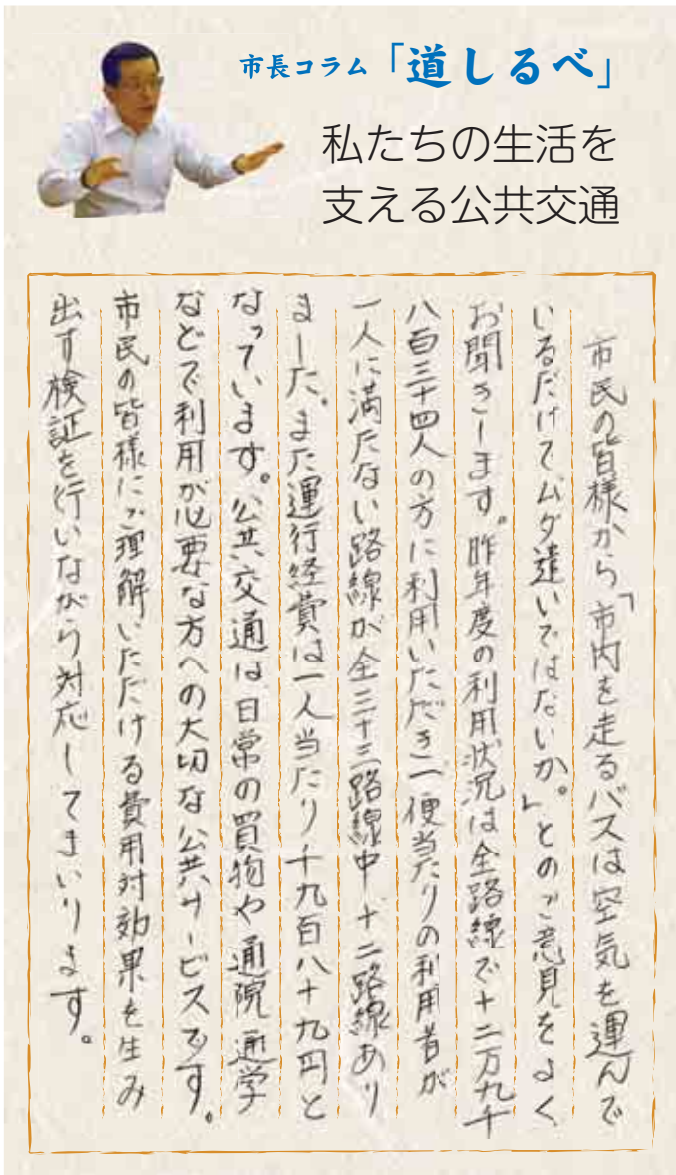 市長コラム「道しるべ」
私たちの生活を
支える公共交通
市民の皆様から「市内を走るバスは空気を運んで
いるだけでムダ遣いではないか。」とのご意見をよく
お聞きします。昨年度の利用状況は全路線で十二万九千
八百三十四人の方に利用いただき、一便当たりの利用者が
一人に満たない路線が全三十三路線中、十二路線あり
ました。また運行経費は一人当たり千九百八十九円と
なっています。公共交通は日常の買物や通院、通学
などで利用が必要な方への大切な公共サービスです。
市民の皆様にご理解いただける費用対効果を生み
出す検証を行いながら対応してまいります。